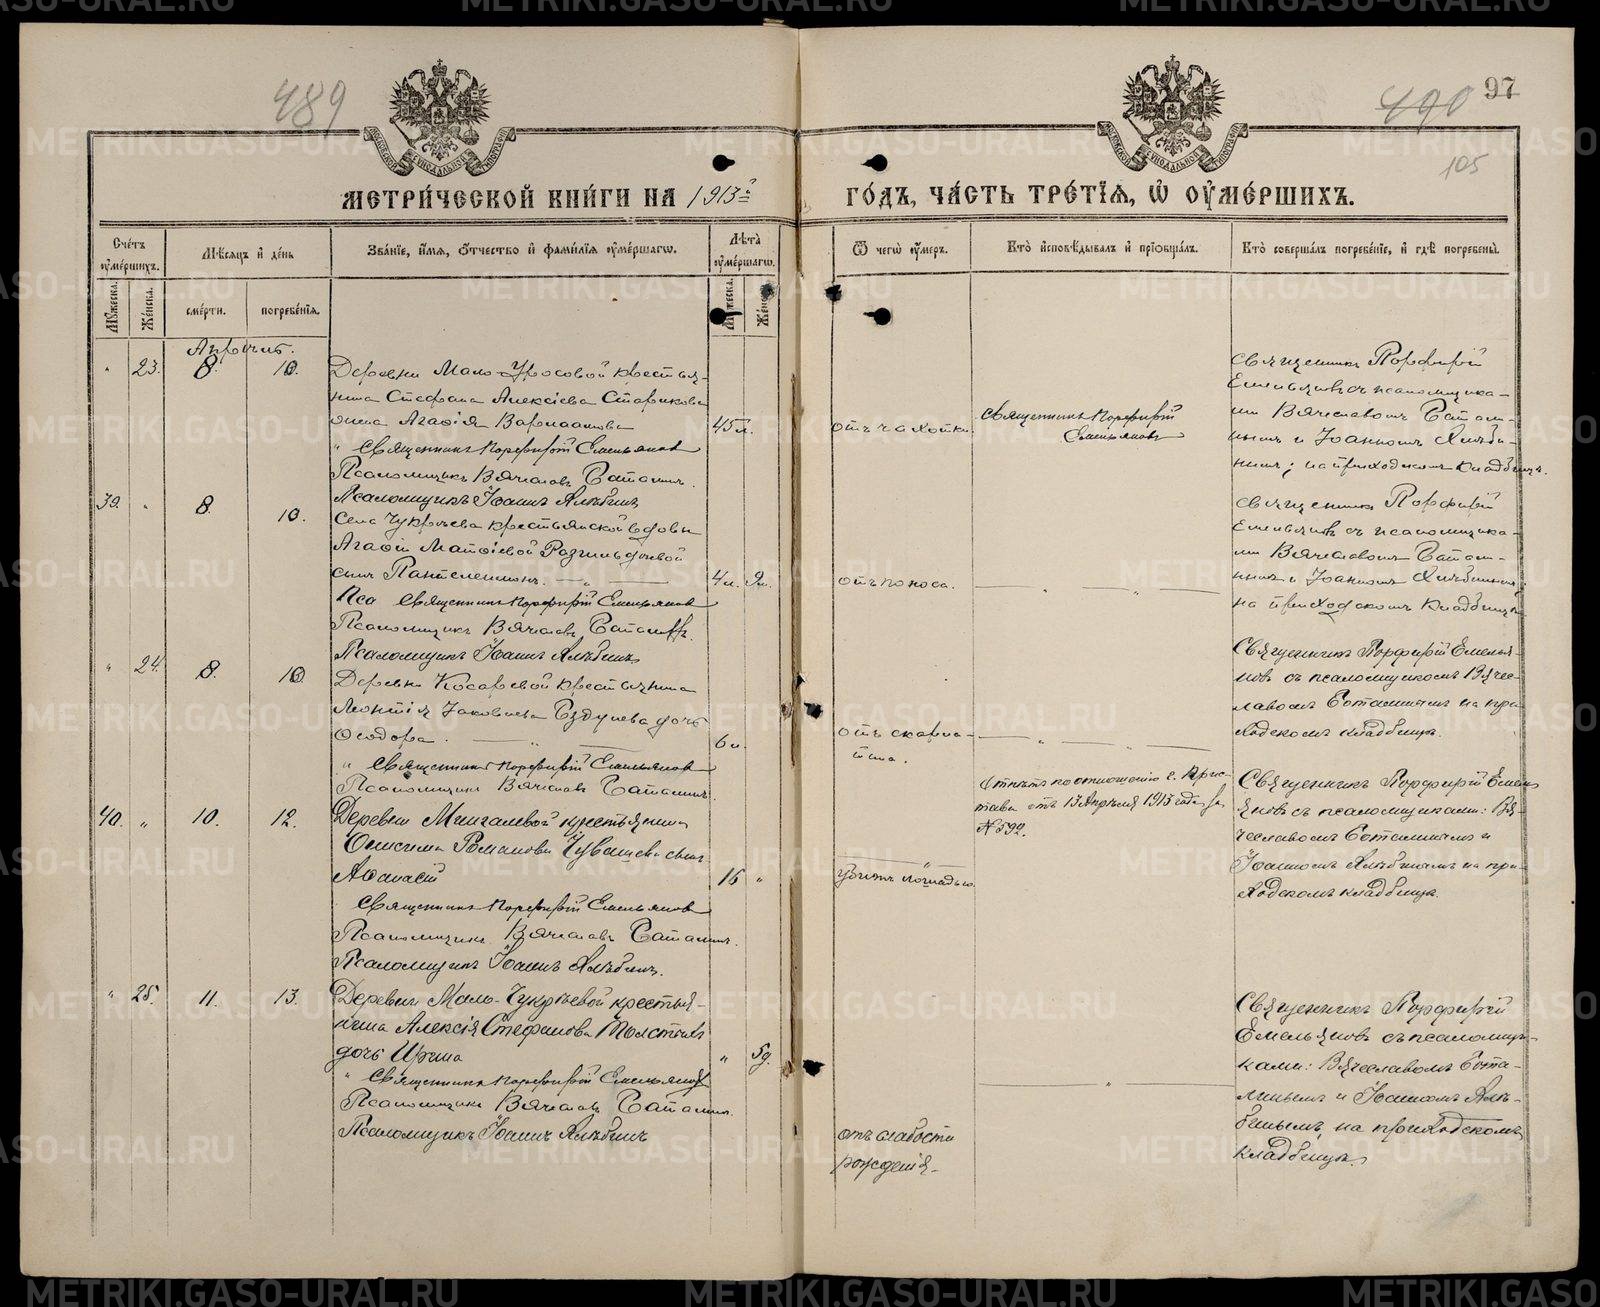 489
490 97
105
МЕТРИ́ЧЕСКОЙ КНИ́ГИ НА 1913й ГО́ДЪ, ЧА́СТЬ ТРЕ́ТІѦ, Ѡ҆ ОУ҆МЕ́РШИХЪ.
Сче́тъ оу҆ме́ршихъ.
Мѣ́сѧцъ и҆ де́нь
Зва́нїе, и҆́мѧ, ѻ҆́тчество и҆ фами́лїѧ оу҆ме́ршагѡ.
Лѣ́та оу҆ме́ршагѡ.
Ѿ чегѡ̀ оу҆́меръ.
Кто̀ и҆сповѣ́дывалъ и҆ прїѡбща́лъ.
Кто̀ соверша́лъ погребе́нїе, и҆ гдѣ̀ погребены̀.
Мꙋ́жеска.
Же́нска.
сме́рти.
погребе́нїѧ.
Мꙋ́жеска.
Же́нска.
Апрѣль.
" 23. 8. 10.
Деревни Мало-Уросовой крестья-
нина Стефана Алексіева Старикова
жена Агафія Варлаамова 45 л.
" Священникъ Порфирій Емельяновъ
Псаломщикъ Вячеславъ Боташинъ.
Псаломщикъ Іоаннъ Хлѣбинъ
отъ чахотки.
Священникъ Порфирій
Емельяновъ
Священникъ Порфирій
Емельяновъ съ псаломщика-
ми Вячеславомъ Боташи-
нымъ и Іоанномъ Хлѣби-
нымъ; на приходскомъ кладбищѣ.
39. " 8. 10.
Села Чукреева крестьянской вдовы
Агафіи Матѳіевой
сынъ Пантелеимонъ. — " — 4 л. 9 м.
Священникъ Порфирій Емельяновъ
Псаломщикъ Вячеславъ Боташинъ.
Псаломщикъ Іоаннъ Хлѣбинъ
отъ поноса.
" — " —
Священникъ Порфирій
Емельяновъ съ псаломщика-
ми Вячеславомъ Боташи-
нымъ и Іоанномъ Хлѣбинымъ;
на приходскомъ кладбищѣ
" 24. 8. 10.
Деревни Косаревой крестьянина
Леонтія Іаковлева дочь
Ѳеодора. — " — 6 м.
" Священникъ Порфирій Емельяновъ
Псаломщикъ Вячеславъ Боташинъ.
отъ скарла-
тина.
— " — " —
Священникъ Порфирій Емелья-
новъ съ псаломщикомъ Вячес-
лавомъ Боташинымъ на при-
ходскомъ кладбищѣ.
40. " 10. 12.
Деревни Мингалевой крестьянина
Онисима Романова Чувашева сынъ
Аѳанасій 16 "
Священникъ Порфирій Емельяновъ
Псаломщикъ Вячеславъ Боташинъ.
Псаломщикъ Іоаннъ Хлѣбинъ.
убитъ лошадью.
Отпѣтъ по отношенію г. Прис-
тава отъ 13 Апрѣля 1913 года за
№ 592.
Священникъ Порфирій Емель-
яновъ съ псаломщиками: Вя-
чеславомъ Боташинымъ и
Іоанномъ Хлѣбинымъ на при-
ходскомъ кладбищѣ.
" 25. 11. 13.
Деревни Мало-Чукреевой крестья-
нина Алексія Стефанова Толстыхъ
дочь Ирина " 5 д.
" Священникъ Порфирій Емельяновъ
Псаломщикъ Вячеславъ Боташинъ.
Псаломщикъ Іоаннъ Хлѣбинъ
отъ слабости
рожденія.
— " —
Священникъ Порфирій
Емельяновъ съ псаломщи-
ками: Вячеславомъ Бота-
шинымъ и Іоанномъ Хлѣ-
бинымъ, на приходскомъ
кладбищѣ.
METRIKI.GASO-URAL.RU